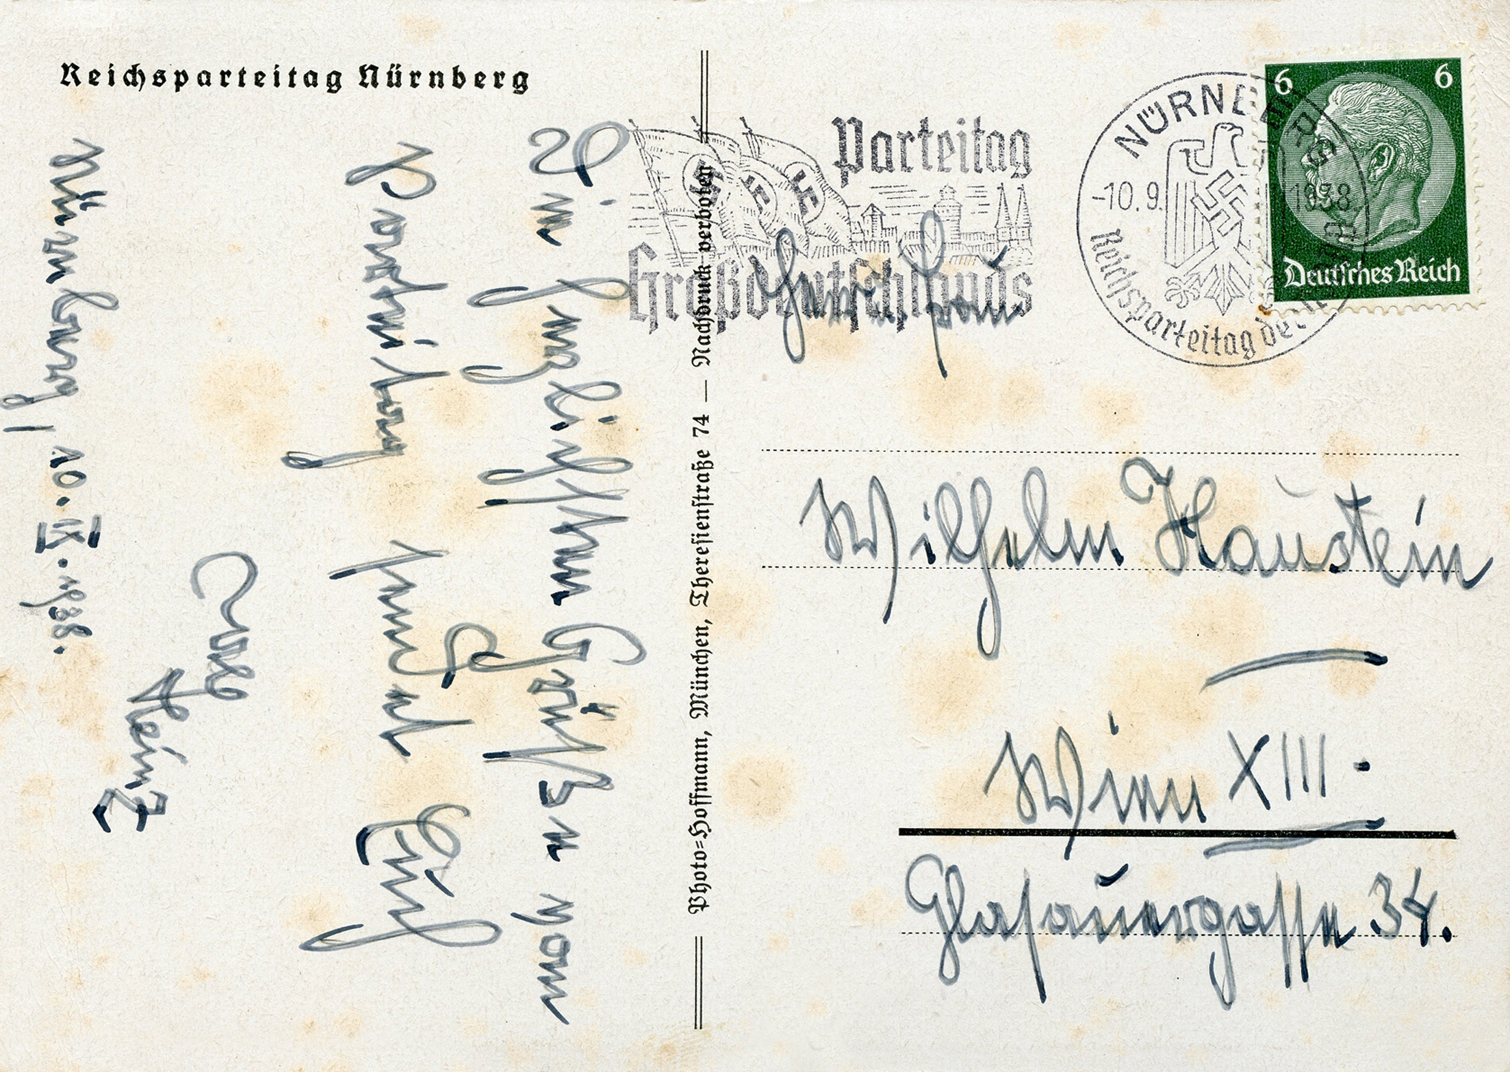 Reichsparteitag Nürnberg
Nürnberg, 10. IX. 1938.
Die herzlichsten Grüße vom
Parteitag
sendet Euch
Euer
Heinz
Photo-Hoffmann, München, Theresienstraße 74 — Nachdruck verboten
Parteitag
Großdeutschlands
NÜRNBERG
-10.9. 1938
Reichsparteitag der
6 6
Deutsches Reich
Wilhelm Haustein
Wien XIII.
Glasauergasse 34.